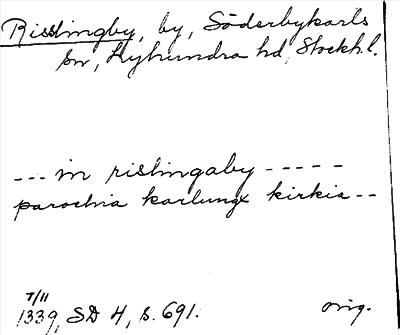 Risslingby, by, Söderbykarls
sn, Lyhundra hd, Stockh.l.
--- in rislingaby -----
parochia karlungx kirkia --
7/11
1339, SD 4, s. 691. orig.